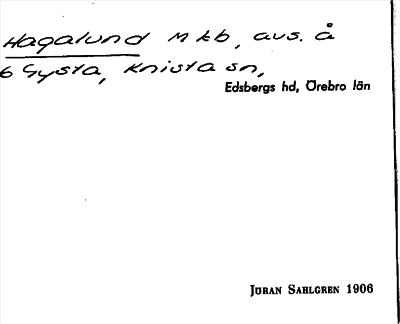 Hagalund Mkb, avs. å
6 Gysta, Knista sn,
Edsbergs hd, Örebro län
Jöran Sahlgren 1906